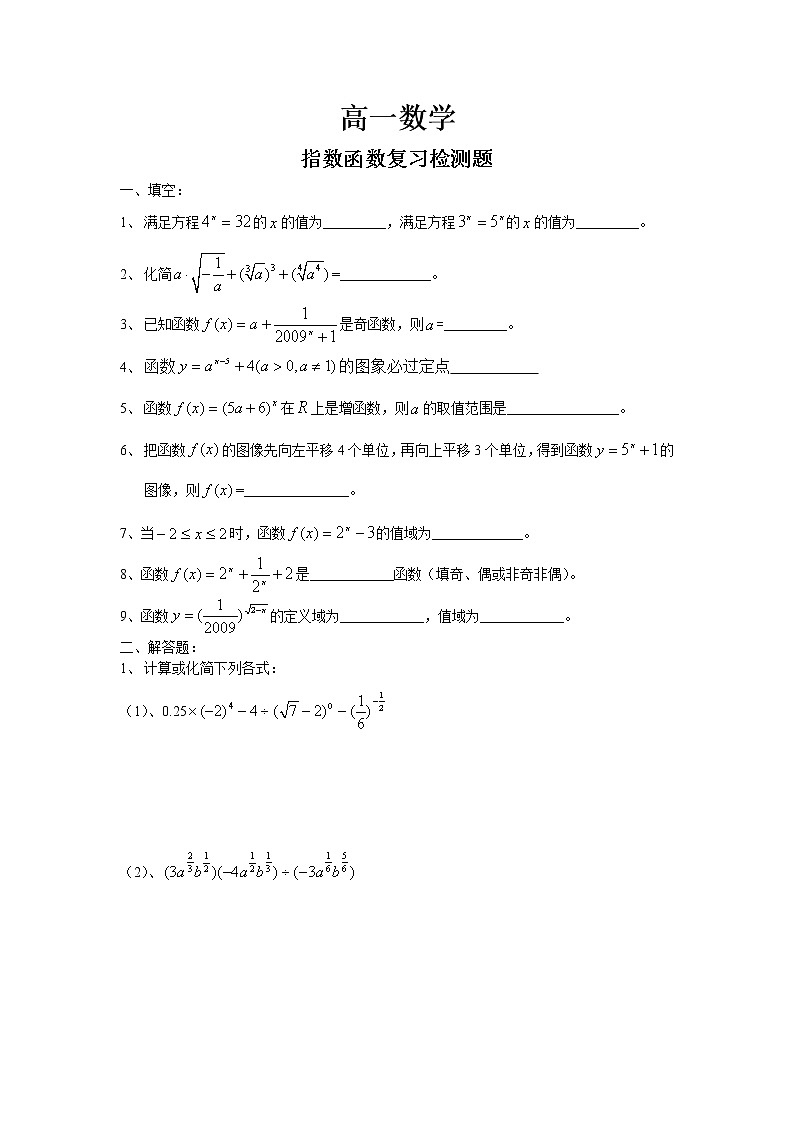 高一数学
指数函数复习检测题
一、填空：
1、满足方程4^x = 32的x的值为_________，满足方程3^x = 5^x的x的值为_________。
2、化简a·√(−1/a) + (∛a)³ + (∜a⁴) =_____________。
3、已知函数f(x) = a + 1/(2009^x + 1)是奇函数，则a=_________。
4、函数y = a^(x−3) + 4(a > 0, a ≠ 1)的图象必过定点____________
5、函数f(x) = (5a + 6)^x在R上是增函数，则a的取值范围是________________。
6、把函数f(x)的图像先向左平移4个单位，再向上平移3个单位，得到函数y = 5^x + 1的
图像，则f(x)=_______________。
7、当−2 ≤ x ≤ 2时，函数f(x) = 2^x − 3的值域为_____________。
8、函数f(x) = 2^x + 1/2^x + 2是____________函数（填奇、偶或非奇非偶）。
9、函数y = (1/2009)^√(2−x)的定义域为____________，值域为____________。
二、解答题：
1、计算或化简下列各式：
（1）、0.25×(−2)^4 − 4 ÷ (√7 − 2)^0 − (1/6)^(−1/2)
（2）、(3a^(2/3)b^(1/2))(−4a^(1/2)b^(1/3)) ÷ (−3a^(1/6)b^(5/6))